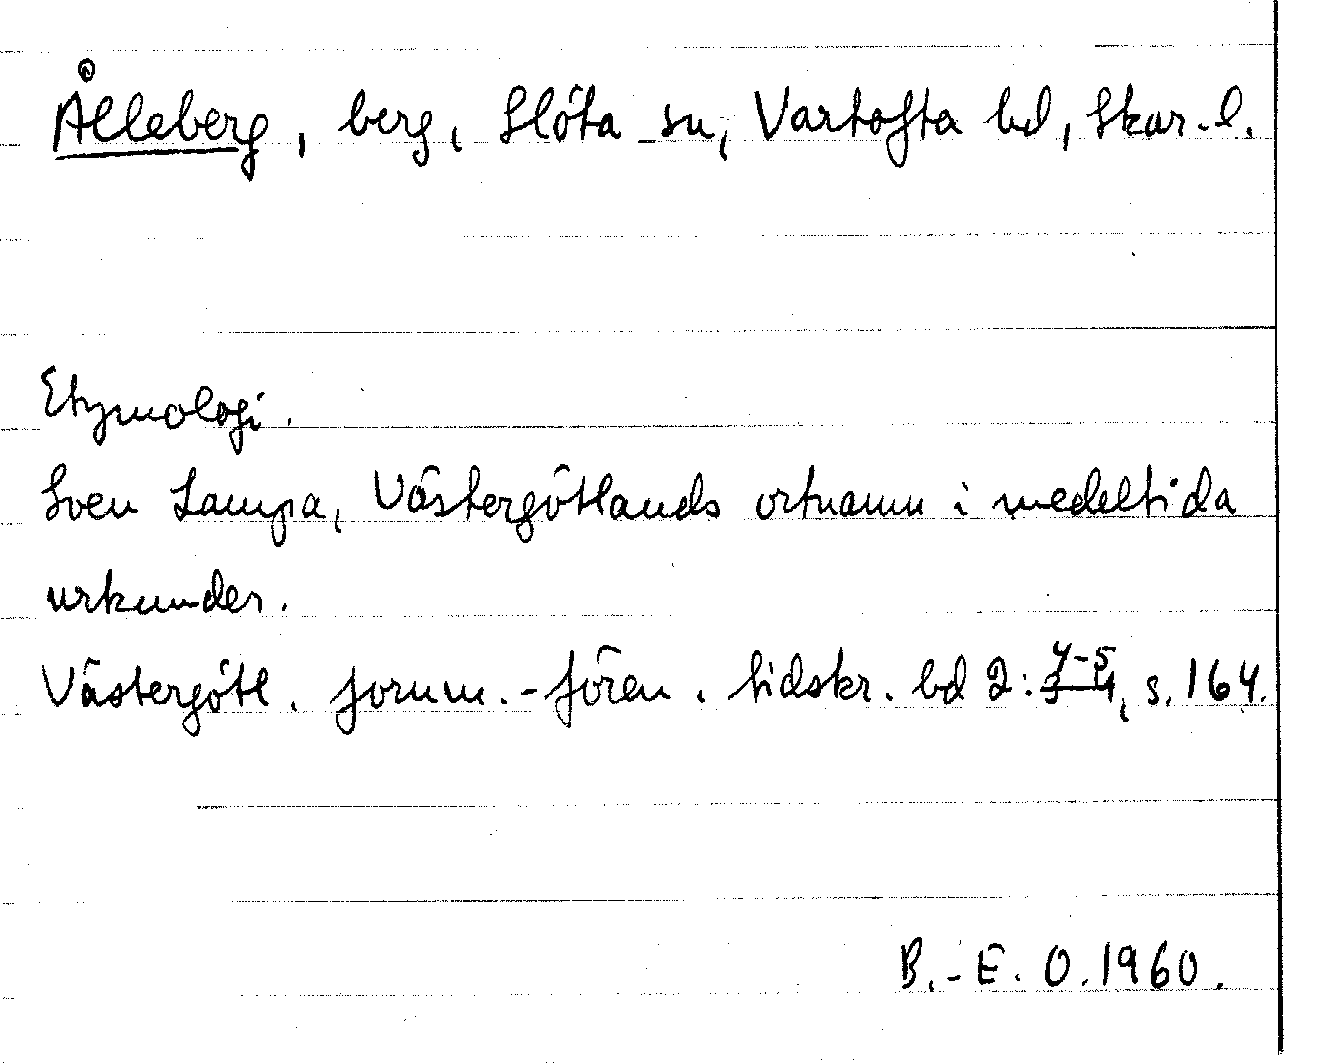 Ålleberg, berg, Slöta sn, Vartofta hd, Skar. l.
Etymologi.
Sven Lampa, Västergötlands ortnamn i medeltida
urkunder.
Västergötl. fornm.-fören. tidskr. bd 2: 4-5, s. 164.
B.-E. O. 1960.